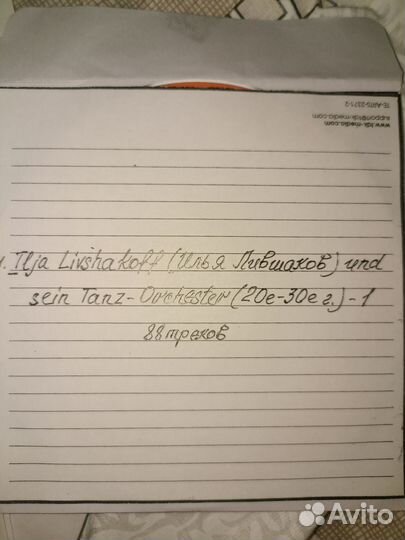 TE-ARTS-2371-2
support@tdk-media.com
www.tdk-media.com
1. Ilja Livshakoff (Илья Лившаков) und
sein Tanz-Orchester (20е-30е г.) - 1
88 треков
Avito